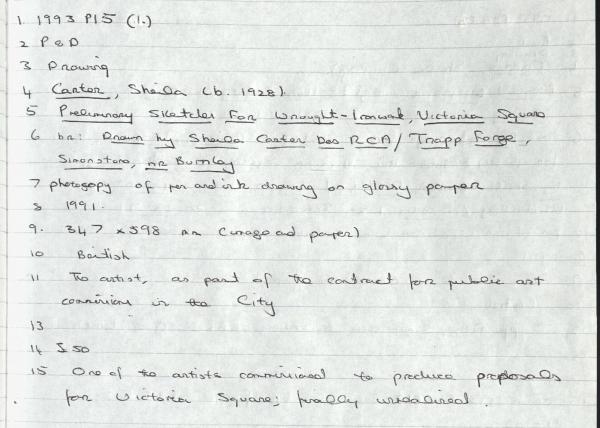 1 1993 P15 (1.)
2 P & D
3 Drawing
4 Carter, Sheila (b. 1928)
5 Preliminary Sketches For Wrought-Ironwork, Victoria Square
6 br: Drawn by Sheila Carter Des RCA/ Trapp Forge,
Simonstone, nr Burnley
7 photocopy of pen and ink drawing on glossy paper
8 1991.
9. 347 x 598 mm (image and paper)
10 British
11 The artist, as part of the contract for public art
commissions in the City
13
14 £50
15 One of the artists commissioned to produce proposals
for Victoria Square; finally unrealised.